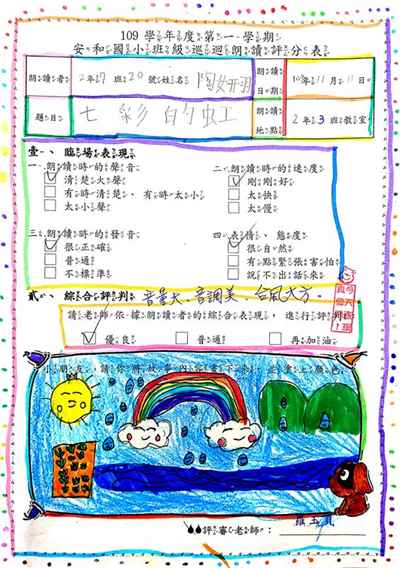 109 學年度第一學期
安和國小班級巡迴朗讀評分表
朗讀者 2年7班20號姓名 朗讀日期 109年11月11日
題目 七彩的虹 朗讀地點 2年3班教室
壹、臨場表現
一、朗讀時的聲音 二、朗讀時的速度
清楚大聲 剛剛好
有時清楚、有時太小 太快
太小聲 太慢
三、朗讀時的發音 四、表情、態度
很正確 很自然
普通 有點緊張害怕
不標準 說不出話來
貳、綜合評判 音量大、音調美、台風大方。
請老師依據朗讀者的綜合表現,進行評判
優良 普通 再加油
小朋友,請你將故事內容畫下來,並塗上顏色
評審老師: